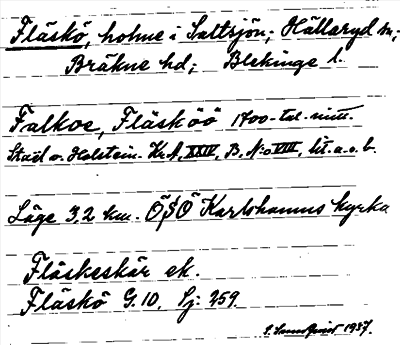 Fläskö, holme i Saltsjön; Hällaryd sn;
Bräkne hd; Blekinge l.
Falkoe, Fläsköö 1700-tal-
Staël v. Holstein. Kr.A. XXIV, B. N:o VIII, lit. a. o. b.
Läge 3,2 km. ÖSÖ Karlshamns kyrka
Fläskeskär ek.
Fläskö G. 10, Sj: 259.
1937.